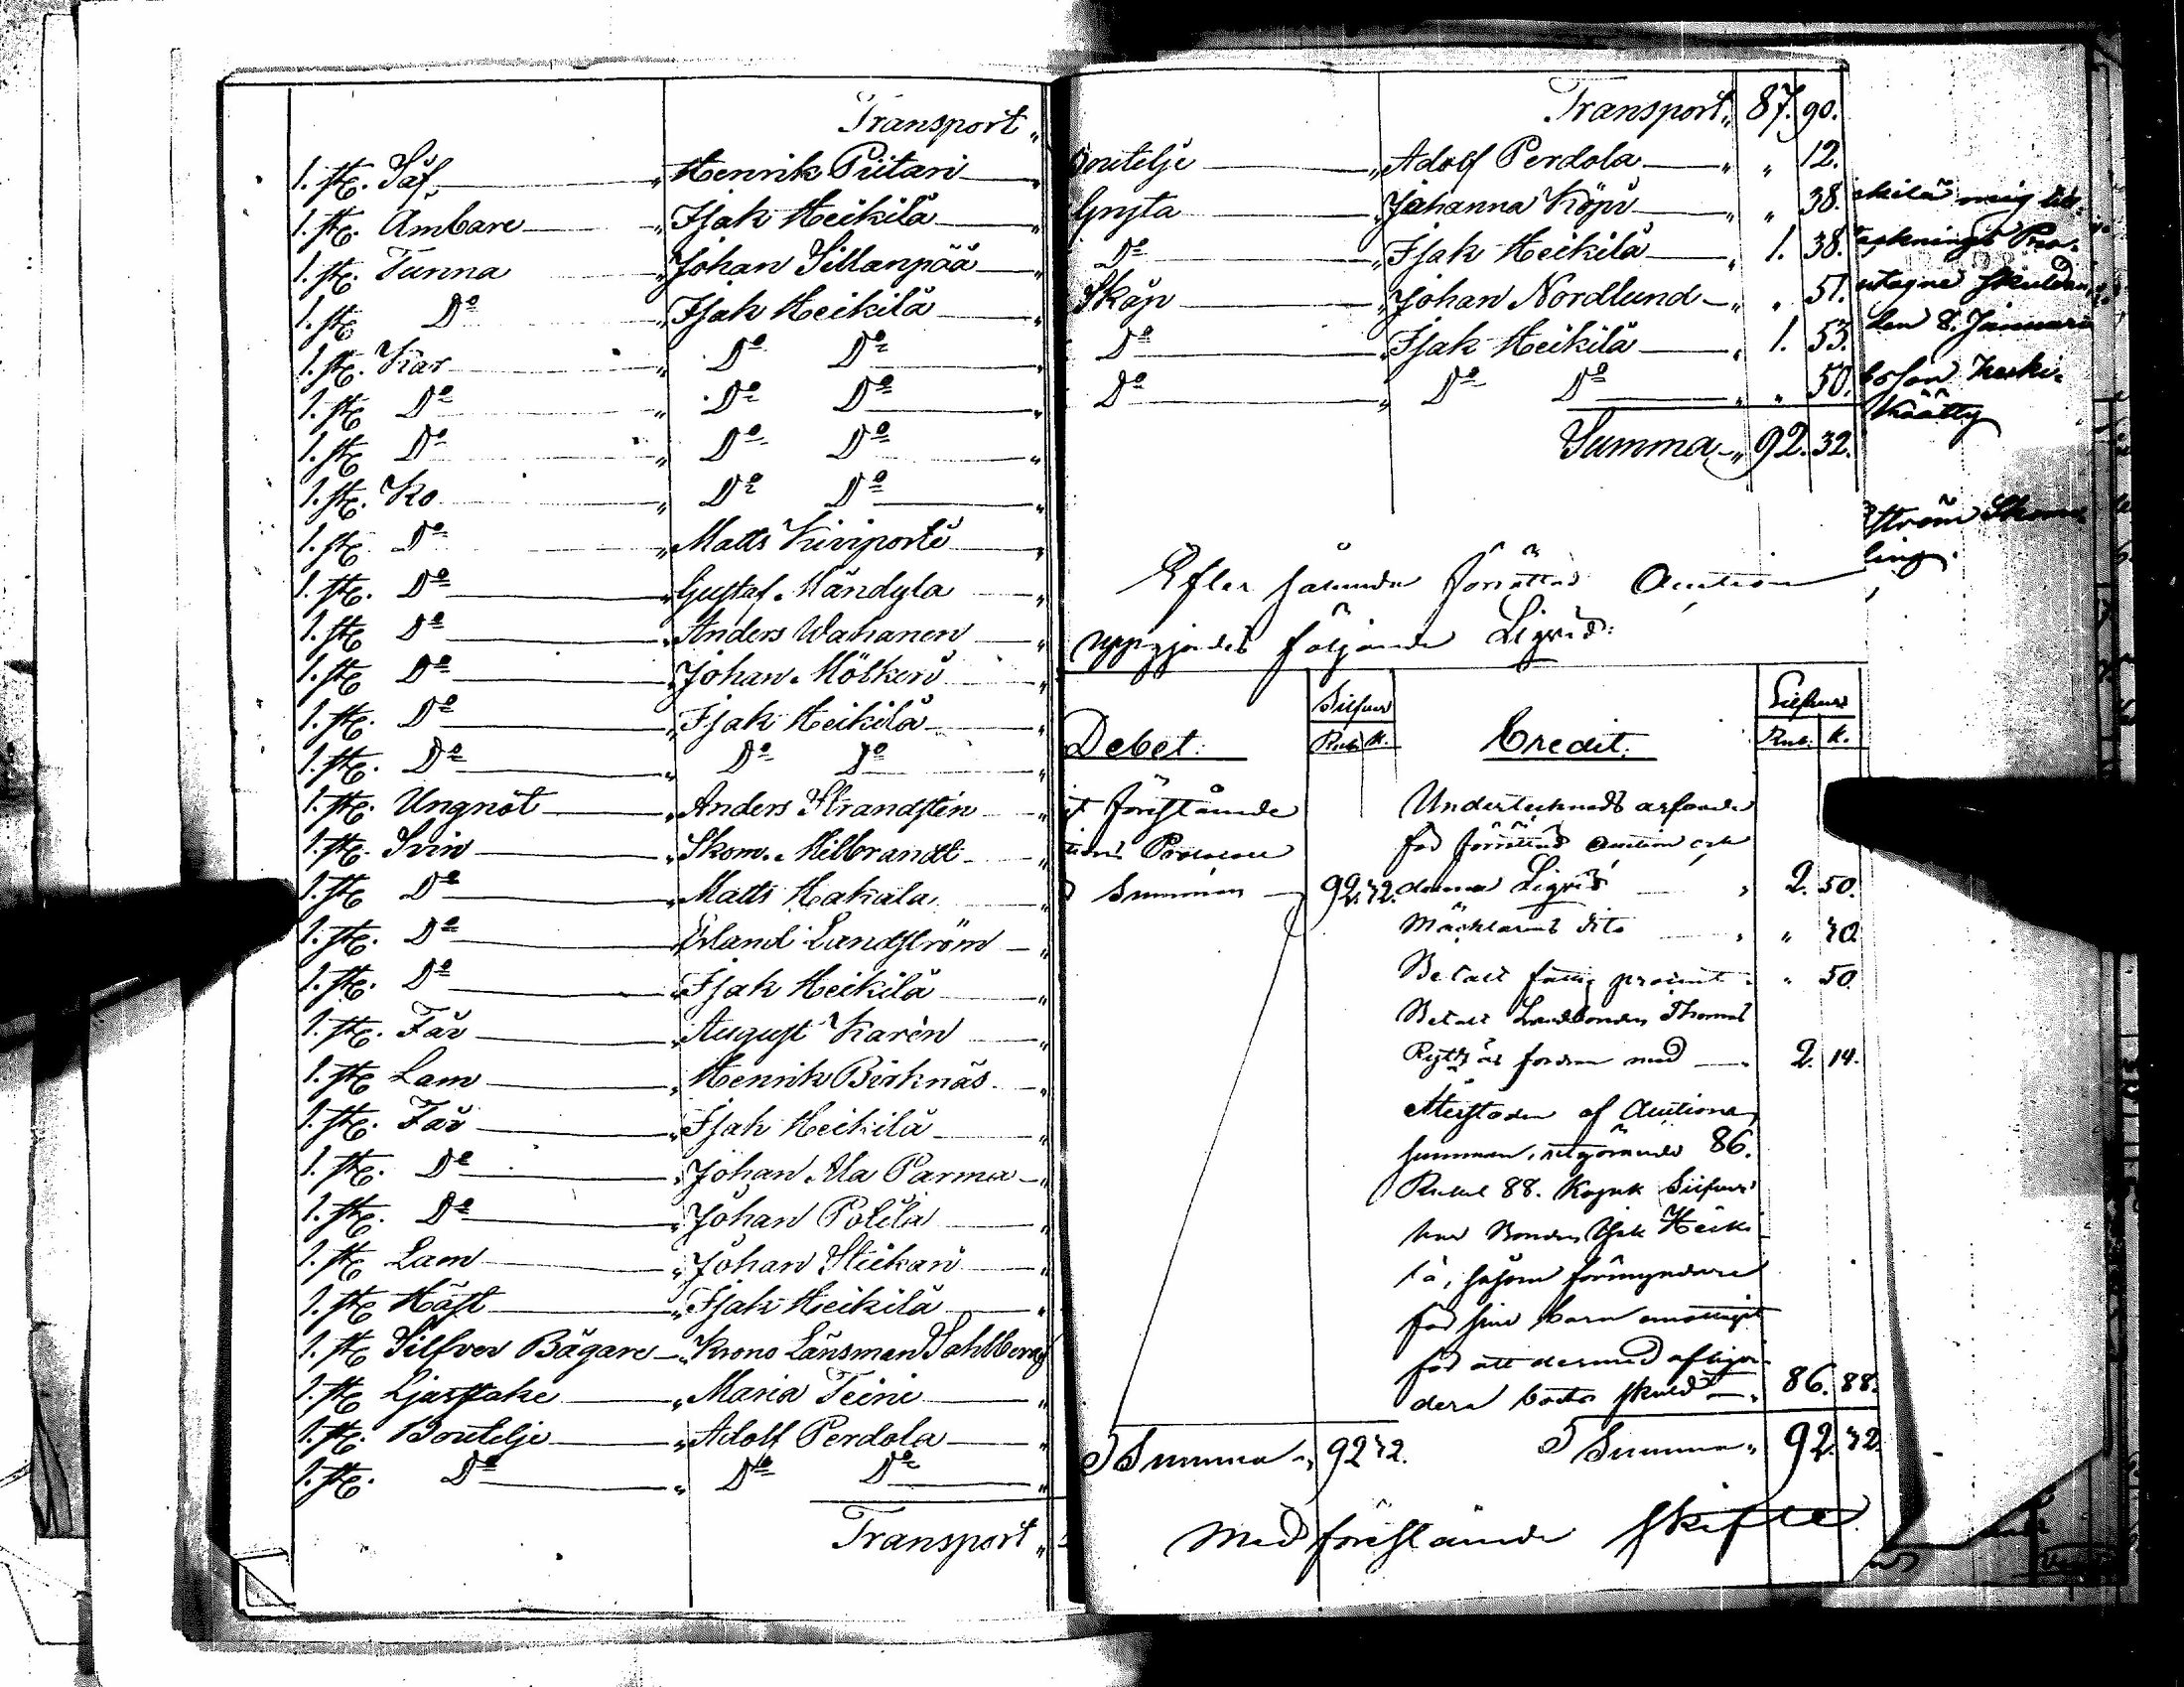 Transport „
1. st. Säf „ Henrik Piitari „
1. st. Ambare „ Isak Heikilä „
1. st. Tunna „ Johan Sillanpää „
1. st. Do „ Isak Heikilä „
1. st. Kar „ Do Do „
1. st. Do „ Do Do „
1. st. Do „ Do Do „
1. st. Ko „ Do Do „
1. st. Do „ Matts Kiviporti „
1. st. Do „ Gustaf Mändyla „
1. st. Do „ Anders Wahanen „
1. st. Do „ Johan Möskeri „
1. st. Do „ Isak Heikilä „
1. st. Do „ Do Do „
1. st. Ungnöt „ Anders Strandsten „
1. st. Svin „ Skom. Hilbrandt „
1. st. Do „ Matts Hakala „
1. st. Do „ Erland Landström „
1. st. Do „ Isak Heikilä „
1. st. Får „ August Karèn „
1. st. Lam „ Henrik Birknäs „
1. st. Får „ Isak Heikilä „
1. st. Do „ Johan Ala Parma „
1. st. Do „ Johan Polila „
1. st. Lam „ Johan Stickari „
1. st. Häst „ Isak Heikilä „
1. st. Silfver Bägare „ Krono Länsman Sahlberg
1. st. Ljusstake „ Maria Teini „
1. st. Boutelje „ Adolf Perdola „
1. st. Do „ Do Do „
Transport „
Transport „ 87. 90.
Boutelje „ Adolf Perdola „ „ 12.
Gryta „ Johanna Köpi „ „ 38.
Do „ Isak Heikilä „ 1. 38.
Skåp „ Johan Nordlund „ „ 51.
Do „ Isak Heikilä „ 1. 53.
Do „ Do Do „ „ 50.
Summa „ 92. 32.
Efter sålunda förrättad Auction
uppgjordes följande Liqvid:
Debet. Silfver Rub. K. Credit. Silfver Rub. K.
förestående Undertecknads arfvode
Protocoll för förrättad Auction och
Summan 92. 42. denna Liqvid „ 2. 50.
Mäcklarens dito „ „ 40.
Betalt fattig procent „ „ 50.
Betalt Landbonden Thomas
fordran med „ 2. 14.
Återstoden af Auctions
summan, utgörande 86.
Rubel 88. Kopek Silfver
har Bonden Isak Heiki
lä, såsom förmyndare
för sine barn emottagit
för att dermed afbör
dera boets skuld „ 86. 88.
Summa „ 92 42. Summa „ 92. 42.
Med förestående skifte
mig
skulden
den 8. Januari
Heiki-
Käätty
ling.